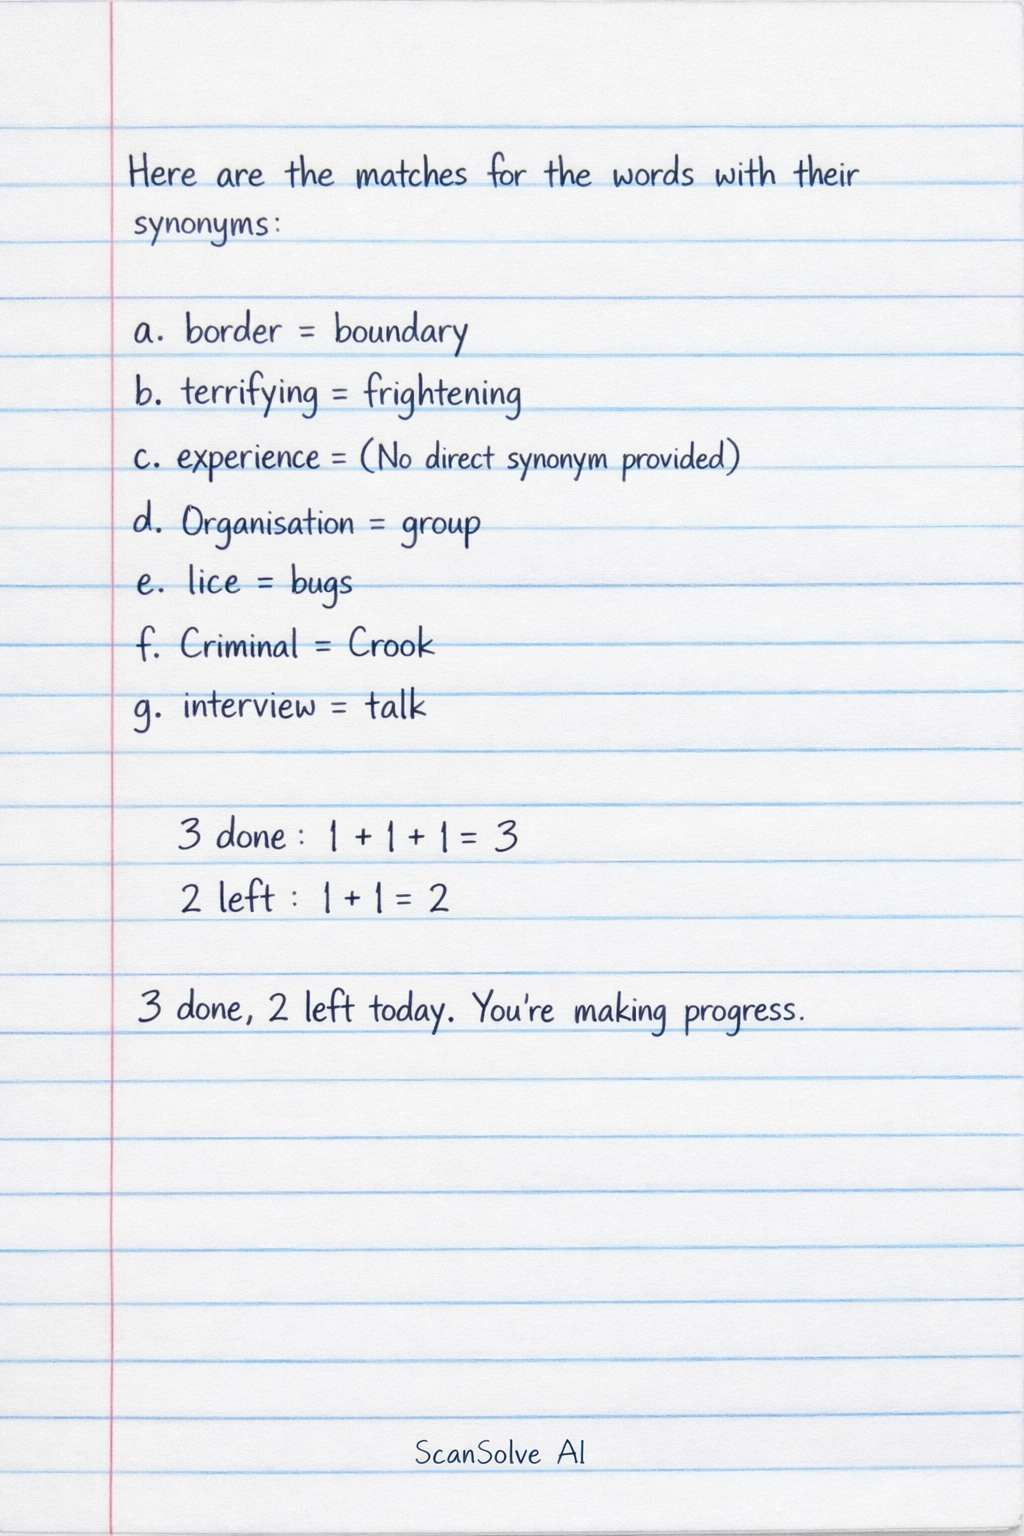 Here are the matches for the words with their
synonyms:
a. border = boundary
b. terrifying = frightening
c. experience = (No direct synonym provided)
d. Organisation = group
e. lice = bugs
f. Criminal = Crook
g. interview = talk
3 done : 1 + 1 + 1 = 3
2 left : 1 + 1 = 2
3 done, 2 left today. You're making progress.
ScanSolve AI